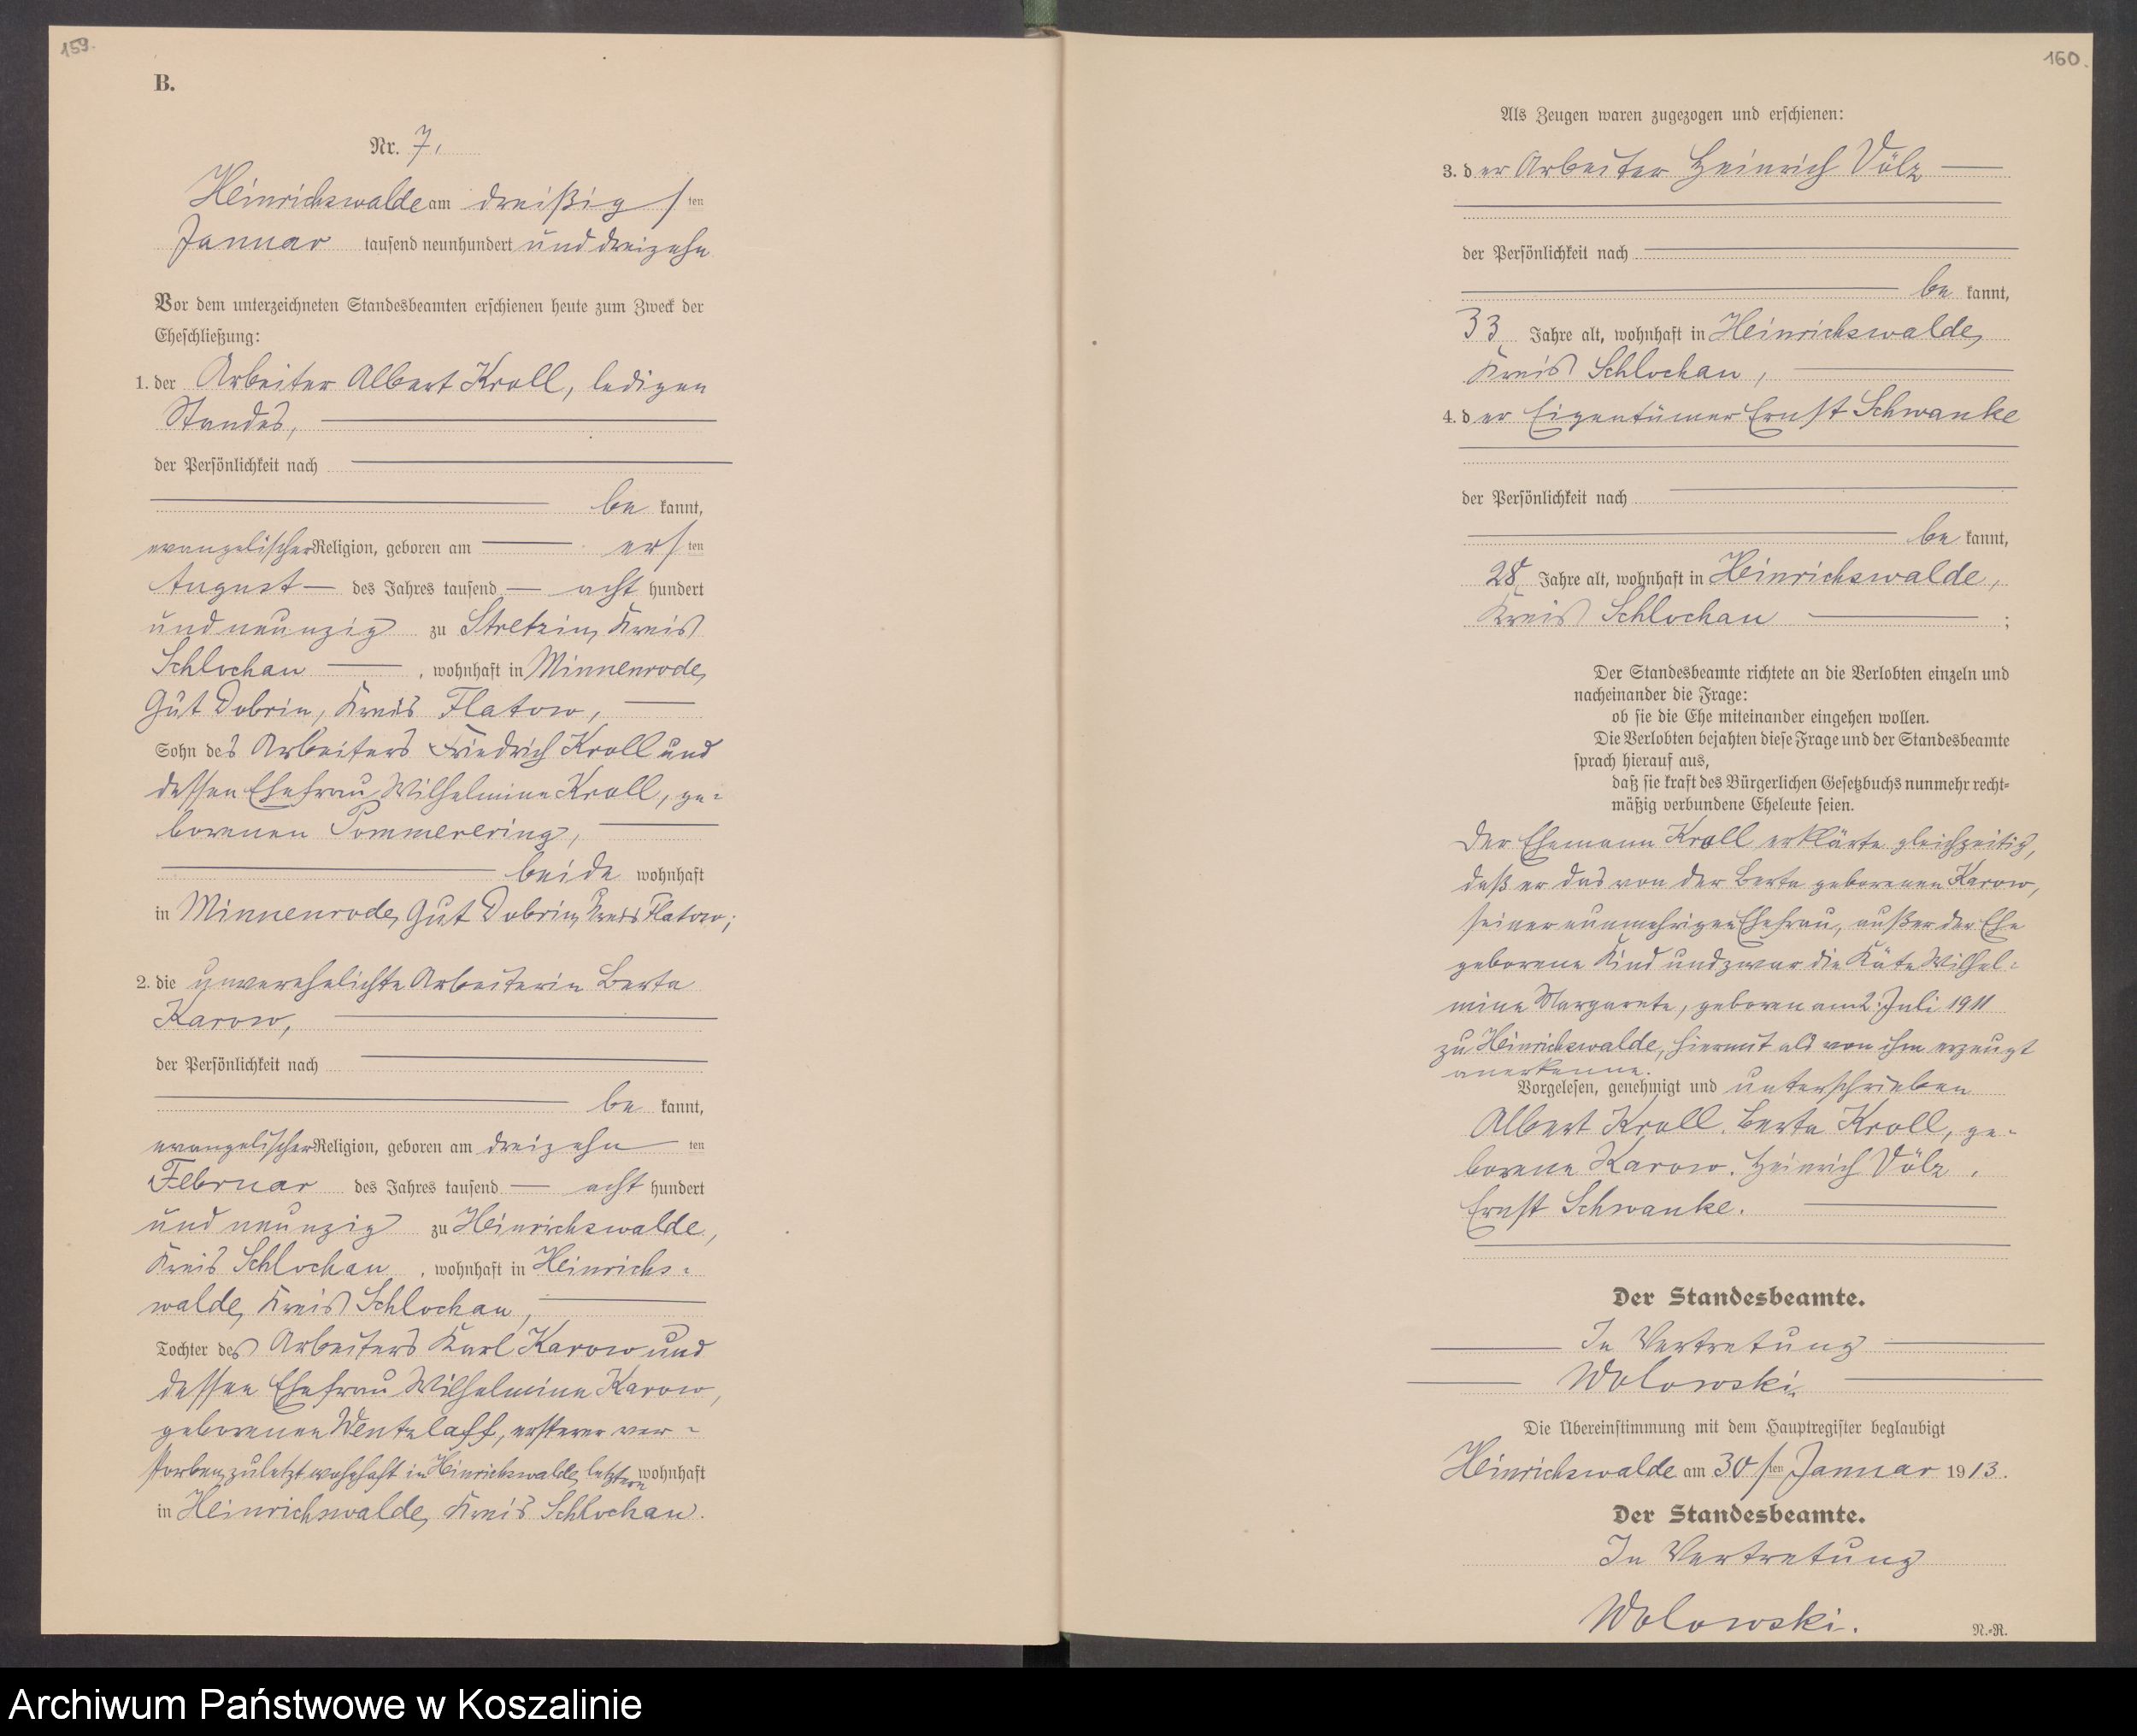 159.
B.
Nr. 7.
Heinrichswalde am dreißigsten
Januar tausend neunhundert und dreizehn
Vor dem unterzeichneten Standesbeamten erschienen heute zum Zweck der
Eheschließung:
1. der Arbeiter Albert Kroll, ledigen
Standes,
der Persönlichkeit nach
be kannt,
evangelischer Religion, geboren am ersten
August des Jahres tausend acht hundert
und neunzig zu Stretzin, Kreis
Schlochau, wohnhaft in Minnenrode,
Gut Dobrin, Kreis Flatow,
Sohn des Arbeiters Friedrich Kroll und
dessen Ehefrau Wilhelmine Kroll, ge=
borenen Pommerering,
beide wohnhaft
in Minnenrode, Gut Dobrin, Kreis Flatow;
2. die unverehelichte Arbeiterin Berta
Karow,
der Persönlichkeit nach
be kannt,
evangelischer Religion, geboren am dreizehn ten
Februar des Jahres tausend acht hundert
und neunzig zu Heinrichswalde,
Kreis Schlochau, wohnhaft in Heinrichs=
walde, Kreis Schlochau,
Tochter des Arbeiters Karl Karow und
dessen Ehefrau Wilhelmine Karow,
geborenen Wentzlaff, ersterer ver=
storben, zuletzt wohnhaft in Heinrichswalde, letztere wohnhaft
in Heinrichswalde, Kreis Schlochau.
160.
Als Zeugen waren zugezogen und erschienen:
3. der Arbeiter Heinrich Völz
der Persönlichkeit nach
be kannt,
33 Jahre alt, wohnhaft in Heinrichswalde,
Kreis Schlochau,
4. der Eigentümer Ernst Schwanke
der Persönlichkeit nach
be kannt,
28 Jahre alt, wohnhaft in Heinrichswalde,
Kreis Schlochau ;
Der Standesbeamte richtete an die Verlobten einzeln und
nacheinander die Frage:
ob sie die Ehe miteinander eingehen wollen.
Die Verlobten bejahten diese Frage und der Standesbeamte
sprach hierauf aus,
daß sie kraft des Bürgerlichen Gesetzbuchs nunmehr recht=
mäßig verbundene Eheleute seien.
Der Ehemann Kroll erklärte gleichzeitig,
daß er das von der Berta geborenen Karow,
seiner nunmehrigen Ehefrau, außer der Ehe
geborene Kind und zwar die Käte Wilhel=
mine Margarete, geboren am 2. Juli 1911
zu Heinrichswalde, hiermit als von ihm erzeugt
anerkenne.
Vorgelesen, genehmigt und unterschrieben
Albert Kroll. Berta Kroll, ge=
borene Karow. Heinrich Völz.
Ernst Schwanke.
Der Standesbeamte.
In Vertretung
Wolowski.
Die Übereinstimmung mit dem Hauptregister beglaubigt
Heinrichswalde am 30 sten Januar 1913.
Der Standesbeamte.
In Vertretung
Wolowski.
N.=R.
Archiwum Państwowe w Koszalinie